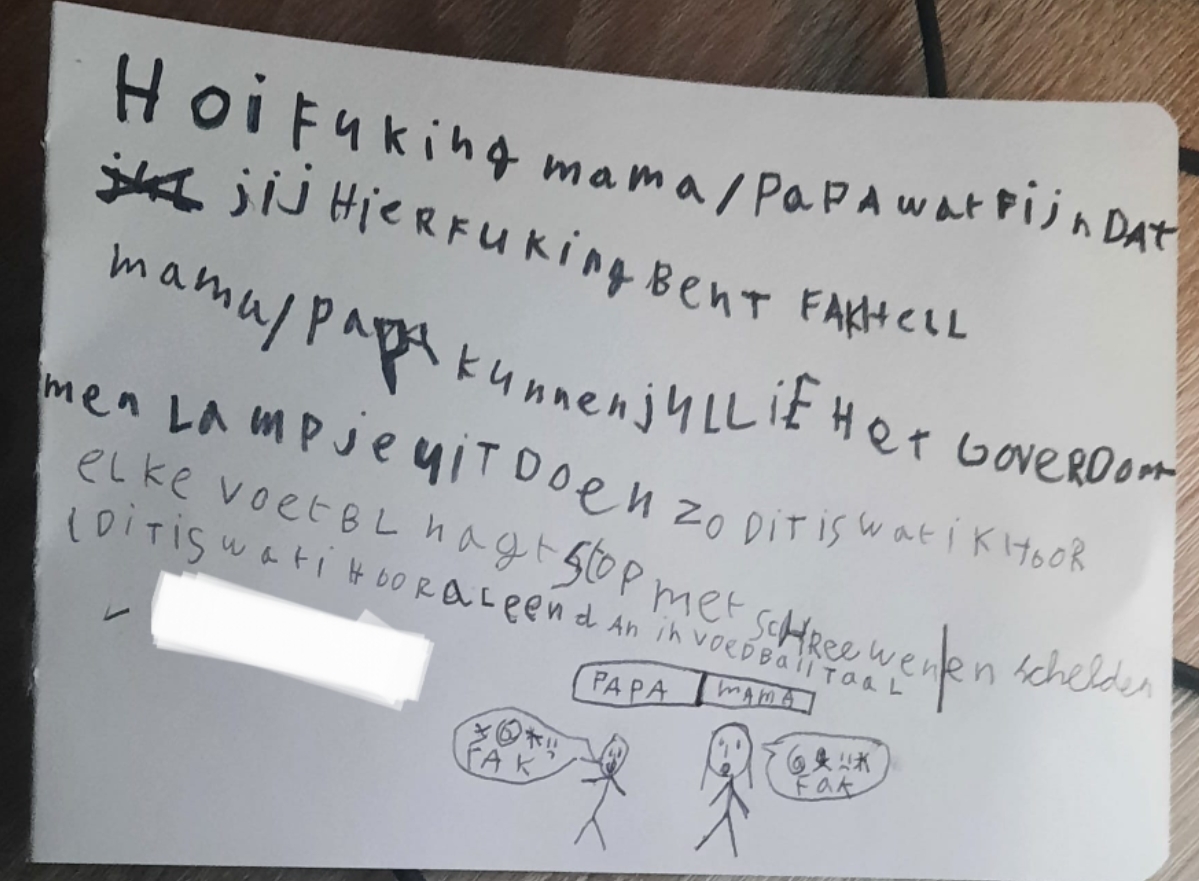 Hoi FuKing mama/PaPA wat Fijn DAt
jij HieR FuKing Bent FAKHeLL
mama/PaPA Kunnen jULLiE Het GOVERDOm
men LamPje uit Doen zo DiT is wat ik HooR
eLKe voetBL nagt Stop met ScHReewen/en schelden
(DiT is wat i HooR aLeen dAn in VOeDBallTaaL
PAPA mAmA
FAK
FaK